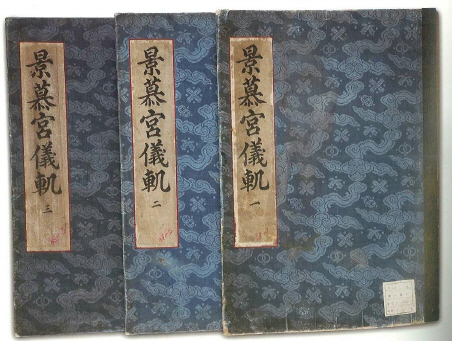 景慕宮儀軌 一
景慕宮儀軌 二
景慕宮儀軌 三